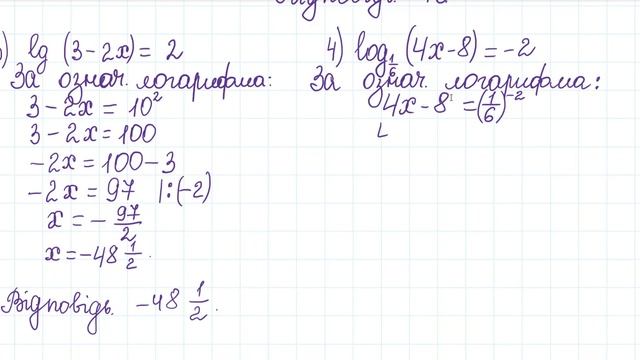 ) lg (3-2x) = 2
За означ. логарифма:
3-2x = 10²
3-2x = 100
-2x = 100-3
-2x = 97 |:(-2)
x = -97/2
x = -48 1/2.
Відповідь. -48 1/2.
4) log_{1/6} (4x-8) = -2
За означ. логарифма:
4x-8 = (1/6)^{-2}